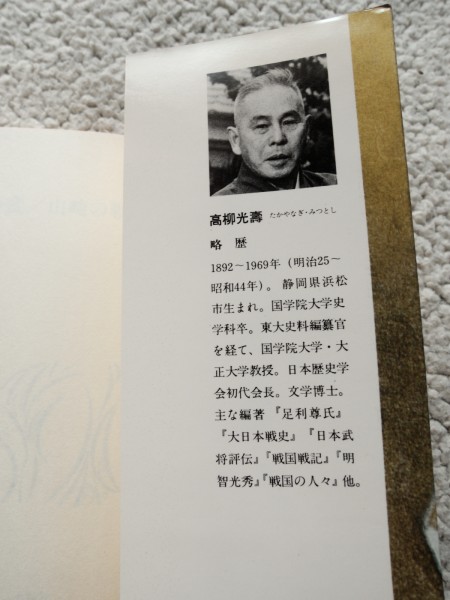 高柳光壽 たかやなぎ・みつとし
略歴
1892～1969年（明治25～
昭和44年）。静岡県浜松
市生まれ。国学院大学史
学科卒。東大史料編纂官
を経て、国学院大学・大
正大学教授。日本歴史学
会初代会長。文学博士。
主な編著『足利尊氏』
『大日本戦史』『日本武
将評伝』『戦国戦記』『明
智光秀』『戦国の人々』他。